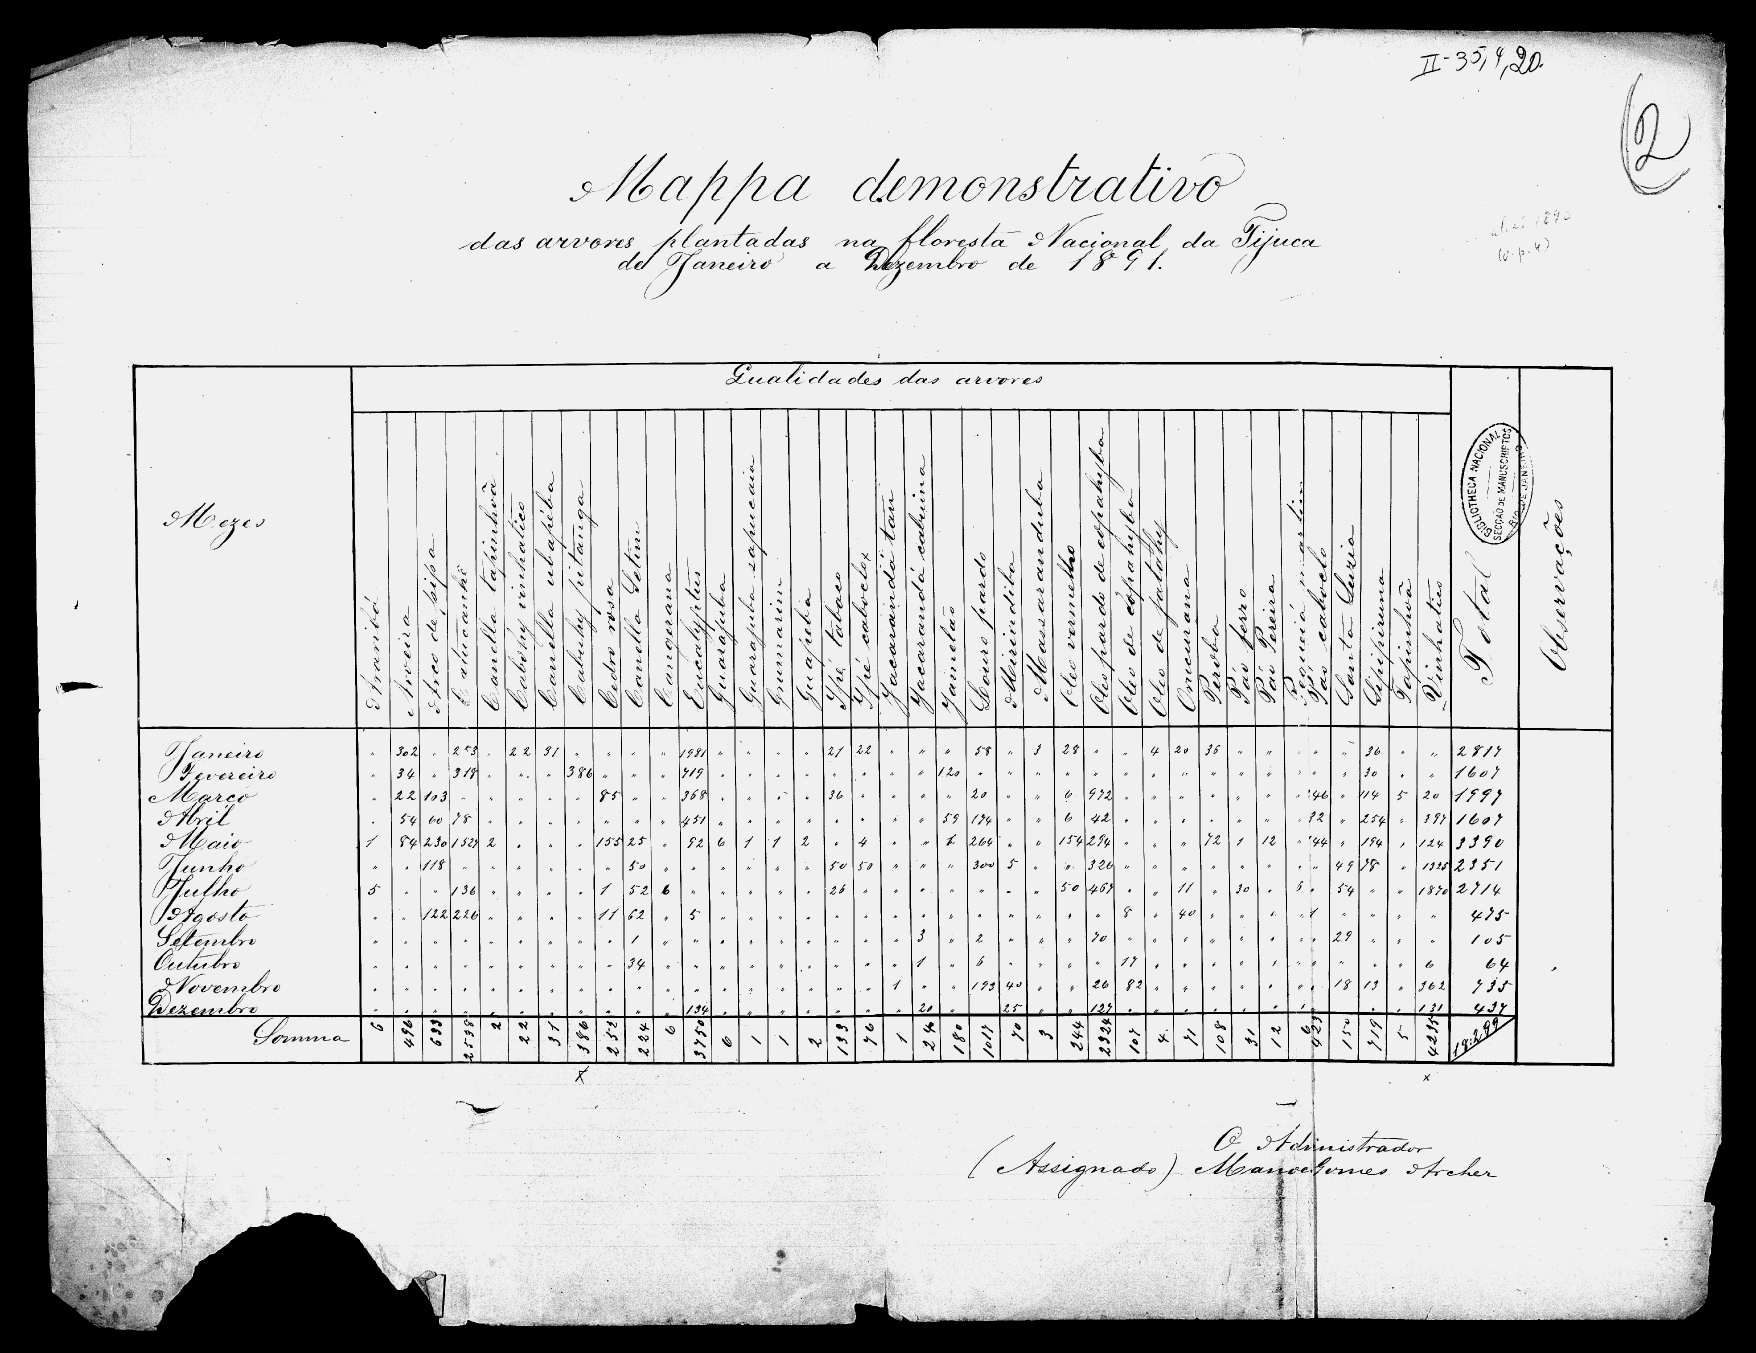 II-35,4,20.
2
Mappa demonstrativo
das arvores plantadas na floresta Nacional da Tijuca
de Janeiro a Dezembro de 1891.
Qualidades das arvores
Mezes
Araribá
Aroeira
Arco de pipa
Batucanhê
Canella tapinhoã
Cabohy vinhatico
Canella ubapéba
Cabuhy pitanga
Cedro rosa
Canella Setim
Cangerana
Eucalyptus
Guarapuba
Guarapuba sapucaia
Grumarim
Guapeba
Ipé tabaco
Ipé caboclo
Jacarandá tan
Jacarandá cabiuna
Jamelão
Louro pardo
Mirindiba
Massaranduba
Oleo vermelho
Oleo pardo de copahyba
Oleo de copahyba
Oleo de jatahy
Oncurana
Peroba
Páo ferro
Páo Pereira
Pequiá martim
Páo caboclo
Santa Luzia
Sipipiruna
Tapinhoã
Vinhatico
Total
Observações
BIBLIOTHECA NACIONAL
SECÇÃO DE MANUSCRIPTOS
RIO DE JANEIRO
Janeiro " 302 " 253 " 22 31 " " " " 1981 " " " " 21 22 " " " 58 " 3 28 " " 4 20 36 " " " " " 36 " " 2817
Fevereiro " 34 " 318 " " " 386 " " " 719 " " " " " " " " 120 " " " " " " " " " " " " " " 30 " " 1607
Março " 22 103 " " " " " 85 " " 368 " " " " 36 " " " " 20 " " 6 972 " " " " " " " 346 " 114 5 20 1997
Abril " 54 60 78 " " " " " " " 451 " " " " " " " " 59 174 " " 6 42 " " " " " " " 32 " 254 " 397 1607
Maio 1 84 230 1527 2 " " " 155 25 " 92 6 1 1 2 " 4 " " 1 264 " " 154 294 " " " 72 1 12 " 44 " 194 " 124 3390
Junho " " 118 " " " " " " 50 " " " " " " 50 50 " " " 300 5 " " 326 " " " " " " " " 49 78 " 1325 2351
Julho 5 " " 136 " " " " 1 52 6 " " " " " 26 " " " " " " " 50 467 " " 11 " 30 " 6 " 54 " " 1870 2714
Agosto " " 122 226 " " " " 11 62 " 5 " " " " " " " " " " " " " " 8 " 40 " " " " 1 " " " " 475
Setembro " " " " " " " " " 1 " " " " " " " " " 3 " 2 " " " 70 " " " " " " " " 29 " " " 105
Outubro " " " " " " " " " 34 " " " " " " " " " 1 " 6 " " " " 17 " " " " " " " " " " 6 64
Novembro " " " " " " " " " " " " " " " " " " 1 " " 193 40 " " 26 82 " " " " " " " 18 13 " 362 735
Dezembro " " " " " " " " " " " 134 " " " " " " " 20 " " 25 " " 127 " " " " " " " " " " " 131 437
Somma 6 496 633 2538 2 22 31 386 252 224 6 3750 6 1 1 2 133 76 1 24 180 1017 70 3 244 2324 107 4 71 108 31 12 6 423 150 719 5 4235 18:299
x x
O Administrador
(Assignado) Manoel Gomes Archer